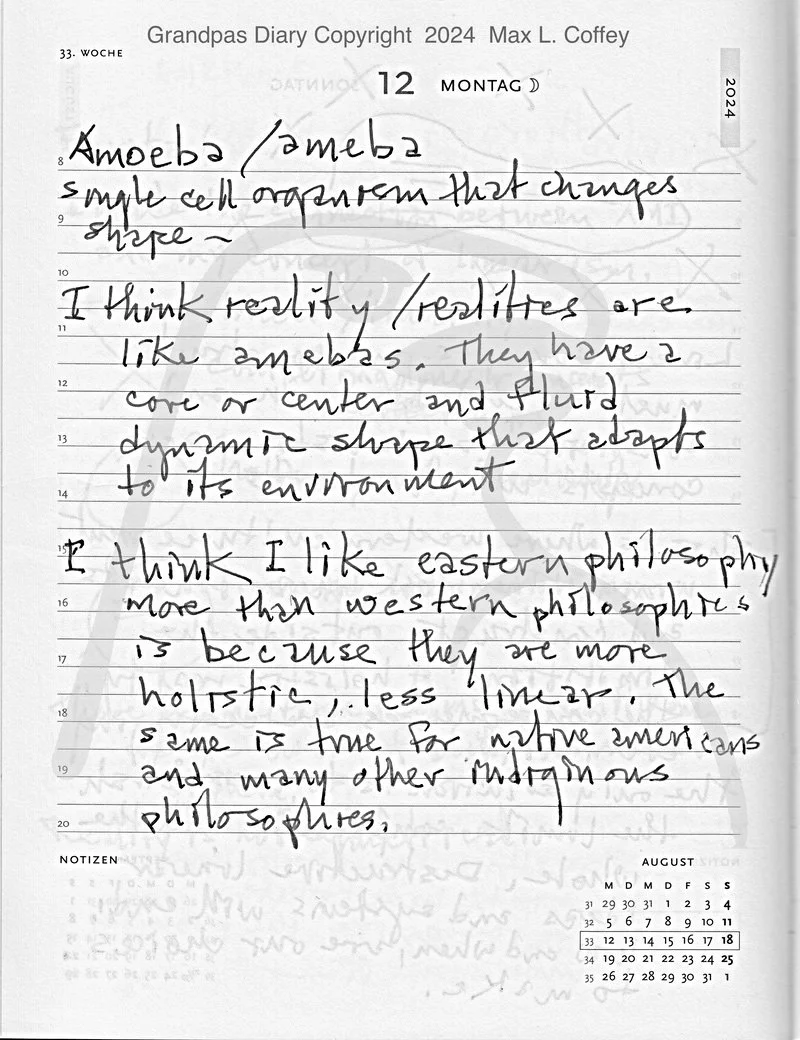 Grandpas Diary Copyright 2024 Max L. Coffey
33. WOCHE
12 MONTAG
2024
8 Amoeba / ameba
single cell organism that changes
9 shape ~
10
I think reality / realities are
11
like amebas. They have a
12 core or center and fluid
13 dynamic shape that adapts
14 to its environment
15 I think I like eastern philosophy
16 more than western philosophies
17 is because they are more
holistic, less linear. The
18
same is true for native americans
19 and many other indiginous
20 philosophies.
NOTIZEN
AUGUST
M D M D F S S
31 29 30 31 1 2 3 4
32 5 6 7 8 9 10 11
33 12 13 14 15 16 17 18
34 19 20 21 22 23 24 25
35 26 27 28 29 30 31 1